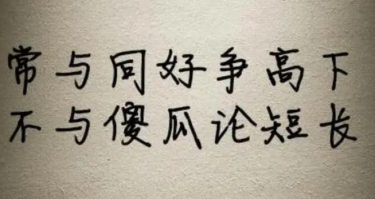 常与同好争高下
不与傻瓜论短长